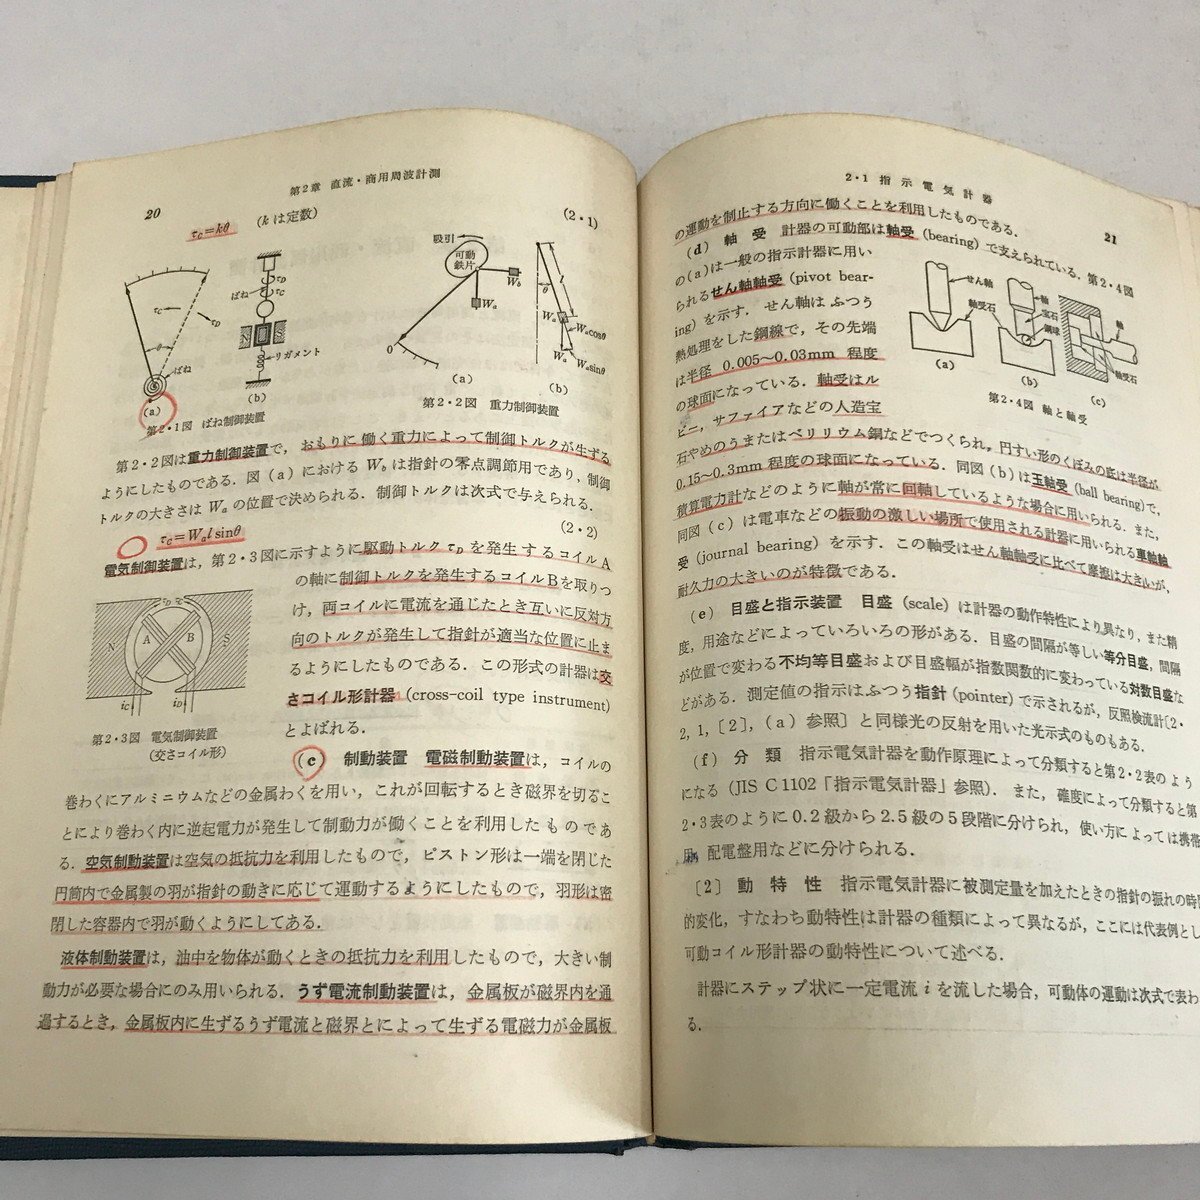 20
第2章 直流・商用周波計測
τC=kθ (kは定数) (2・1)
τC
τD
θ
ばね
(a)
ばね
τD
τC
N
S
リガメント
(b)
第2・1図 ばね制御装置
吸引
可動
鉄片
Wb
Wa
0
(a)
θ
l
Wa
Wacosθ
Wa
Wasinθ
(b)
第2・2図 重力制御装置
第2・2図は重力制御装置で，おもりに働く重力によって制御トルクが生ずる
ようにしたものである．図(a)におけるWbは指針の零点調節用であり，制御
トルクの大きさはWaの位置で決められる．制御トルクは次式で与えられる．
τC=Walsinθ (2・2)
電気制御装置は，第2・3図に示すように駆動トルクτDを発生するコイルA
の軸に制御トルクを発生するコイルBを取りつ
け，両コイルに電流を通じたとき互いに反対方
向のトルクが発生して指針が適当な位置に止ま
るようにしたものである．この形式の計器は交
さコイル形計器 (cross-coil type instrument)
とよばれる．
τD τC
N
A
B
S
iC
iD
第2・3図 電気制御装置
(交さコイル形)
(c) 制動装置 電磁制動装置は，コイルの
巻わくにアルミニウムなどの金属わくを用い，これが回転するとき磁界を切るこ
とにより巻わく内に逆起電力が発生して制動力が働くことを利用したものであ
る．空気制動装置は空気の抵抗力を利用したもので，ピストン形は一端を閉じた
円筒内で金属製の羽が指針の動きに応じて運動するようにしたもので，羽形は密
閉した容器内で羽が動くようにしてある．
液体制動装置は，油中を物体が動くときの抵抗力を利用したもので，大きい制
動力が必要な場合にのみ用いられる．うず電流制動装置は，金属板が磁界内を通
過するとき，金属板内に生ずるうず電流と磁界とによって生ずる電磁力が金属板
2・1 指示電気計器
21
の運動を制止する方向に働くことを利用したものである．
(d) 軸受 計器の可動部は軸受 (bearing) で支えられている．第2・4図
の(a)は一般の指示計器に用い
られるせん軸軸受 (pivot bear-
ing) を示す．せん軸はふつう
熱処理をした鋼線で，その先端
は半径 0.005～0.03mm 程度
の球面になっている．軸受はル
ビー，サファイアなどの人造宝
せん軸
軸受石
(a)
軸
宝石
鋼球
(b)
軸
軸受石
(c)
第2・4図 軸と軸受
石やめのうまたはベリリウム銅などでつくられ，円すい形のくぼみの底は半径が
0.15～0.3mm 程度の球面になっている．同図(b)は玉軸受 (ball bearing)で，
積算電力計などのように軸が常に回転しているような場合に用いられる．また，
同図(c)は電車などの振動の激しい場所で使用される計器に用いられる車軸軸
受 (journal bearing) を示す．この軸受はせん軸軸受に比べて摩擦は大きいが，
耐久力の大きいのが特徴である．
(e) 目盛と指示装置 目盛 (scale) は計器の動作特性により異なり，また精
度，用途などによっていろいろの形がある．目盛の間隔が等しい等分目盛，間隔
が位置で変わる不均等目盛および目盛幅が指数関数的に変わっている対数目盛な
どがある．測定値の指示はふつう指針 (pointer) で示されるが，反照検流計〔2・
2, 1, 〔2〕，(a) 参照〕と同様光の反射を用いた光示式のものもある．
(f) 分類 指示電気計器を動作原理によって分類すると第2・2表のよう
になる (JIS C 1102「指示電気計器」参照)．また，確度によって分類すると第
2・3表のように0.2級から2.5級の5段階に分けられ，使い方によっては携帯
用，配電盤用などに分けられる．
〔2〕 動特性 指示電気計器に被測定量を加えたときの指針の振れの時間
的変化，すなわち動特性は計器の種類によって異なるが，ここには代表例とし
可動コイル形計器の動特性について述べる．
計器にステップ状に一定電流 i を流した場合，可動体の運動は次式で表わ
る．